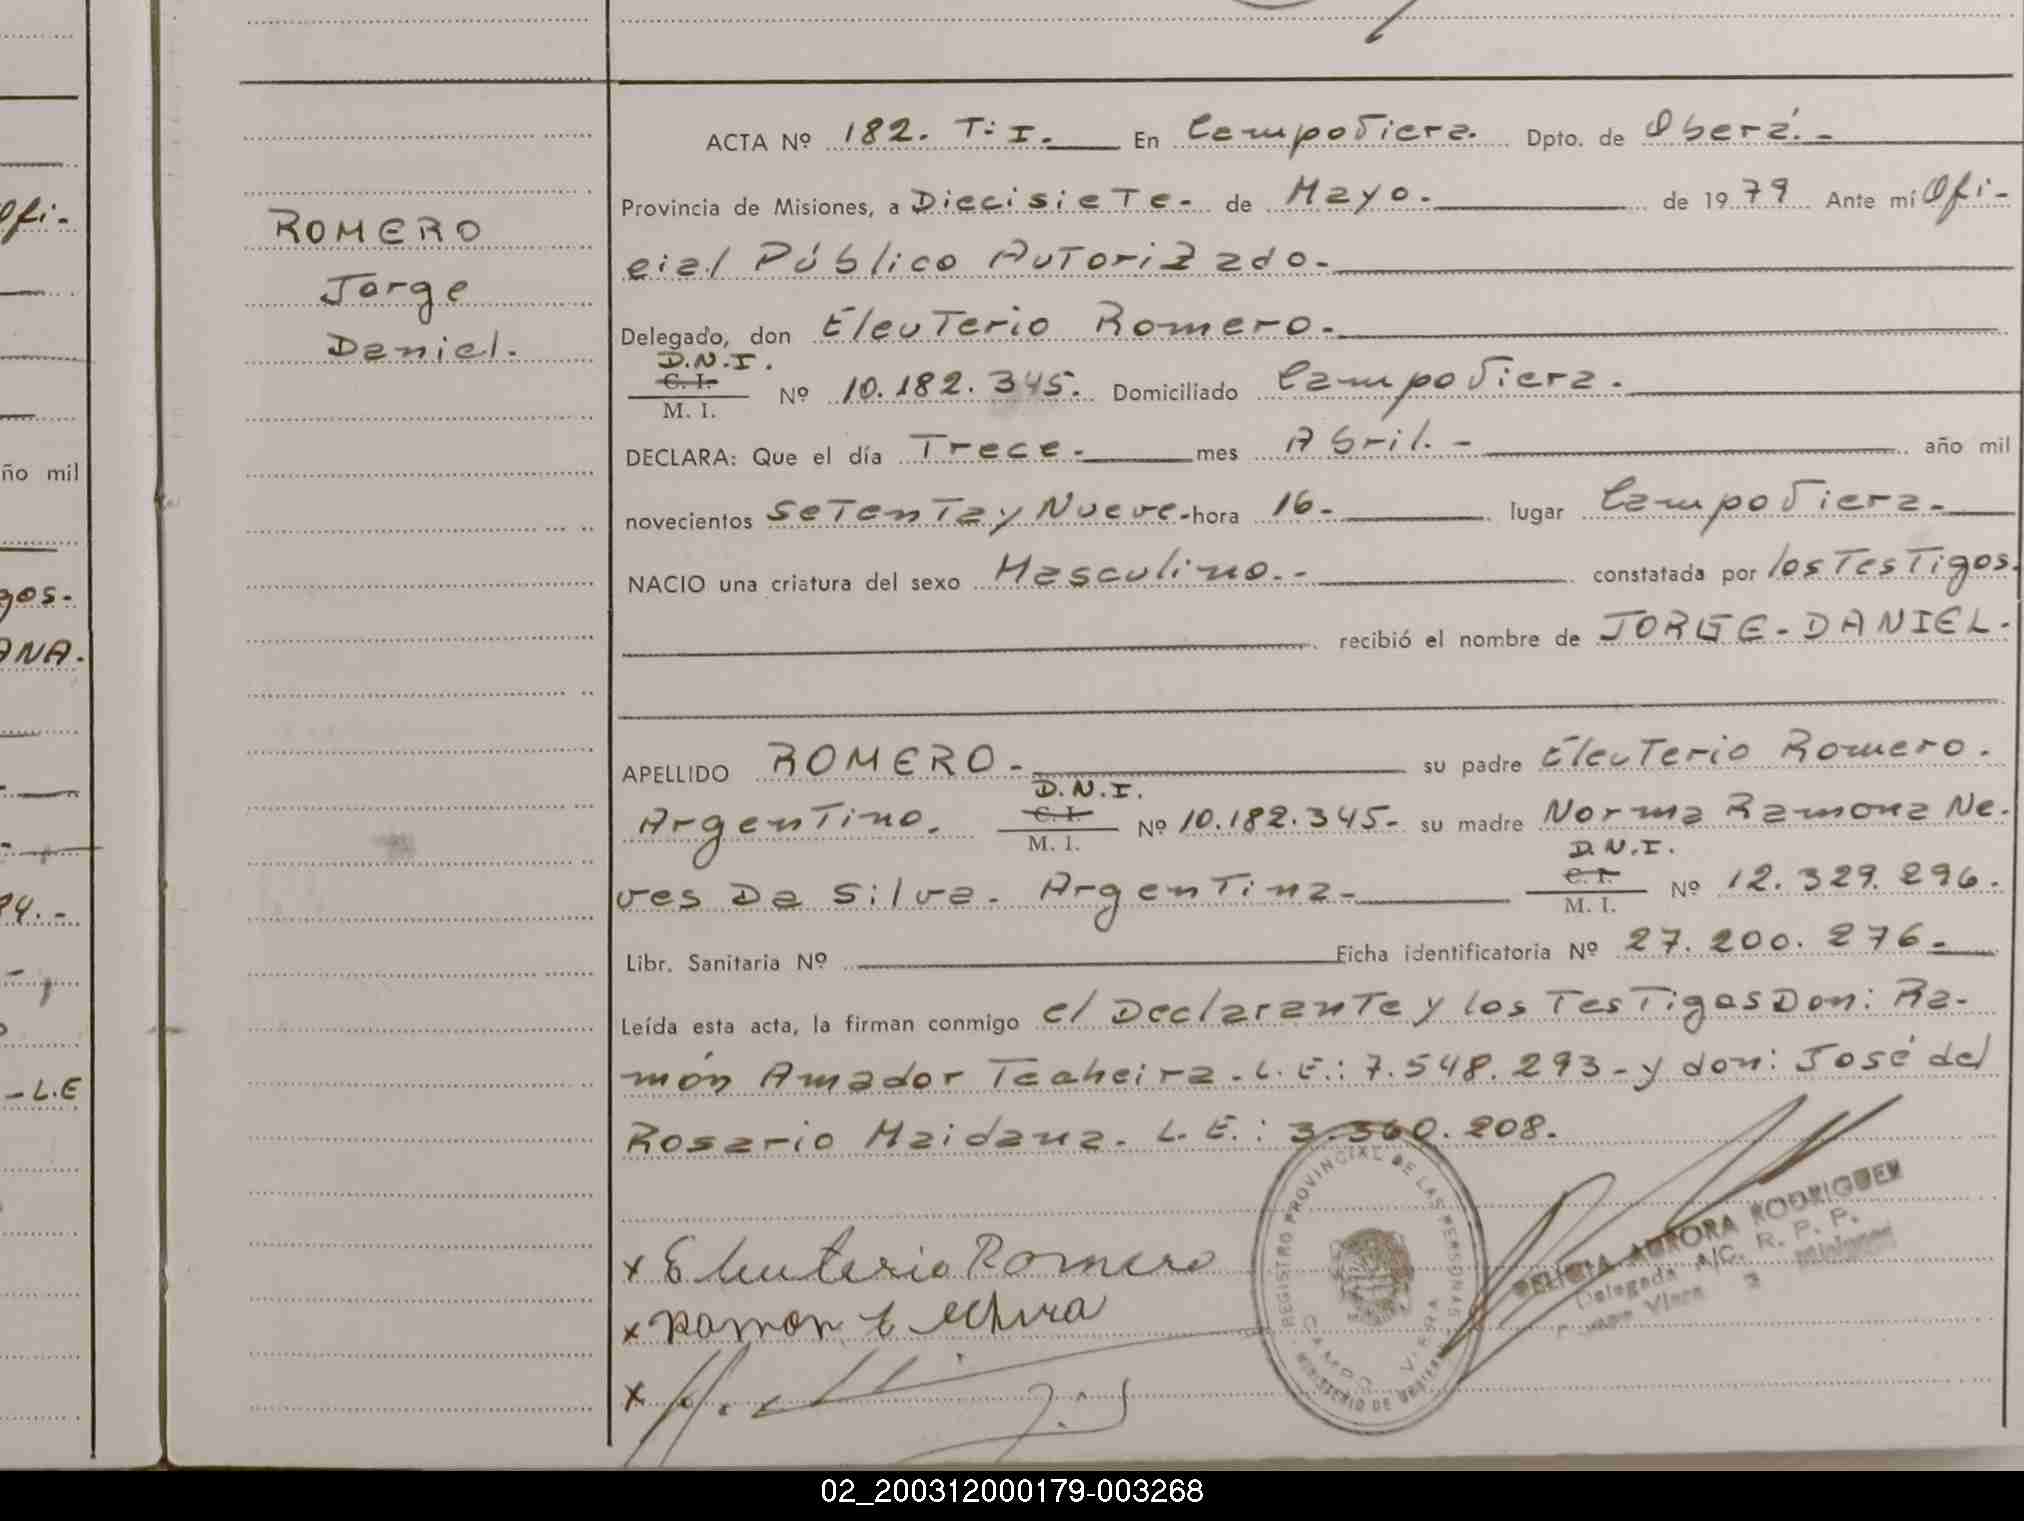 ofi-
ño mil
gos-
ANA.
94.-
-L.E
ROMERO
Jorge
Daniel.
ACTA Nº 182. T: I. En Campo Viera. Dpto. de Oberá.-
Provincia de Misiones, a Diecisiete- de Mayo.- de 1979 Ante mí Ofi-
cial Público Autorizado.-
Delegado, don Eleuterio Romero.-
D.N.I.
C. I.
M. I. Nº 10.182.345. Domiciliado Campo Viera.
DECLARA: Que el día Trece.- mes Abril.- año mil
novecientos Setenta y Nueve-hora 16- lugar Campo Viera.-
NACIO una criatura del sexo Masculino.- constatada por los Testigos.
recibió el nombre de JORGE-DANIEL.
APELLIDO ROMERO- su padre Eleuterio Romero.
D.N.I.
Argentino. C. I. M. I. Nº 10.182.345- su madre Norma Ramona Ne-
D.N.I.
ves Da Silva. Argentina- C. I. M. I. Nº 12.329.296.
Libr. Sanitaria Nº Ficha identificatoria Nº 27.200.276-
Leída esta acta, la firman conmigo el Declarante y los Testigos Don: Ra-
món Amador Teaheira. L.E.: 7.548.293- y don: José del
Rosario Maidana. L.E.: 3.360.208.
x Eleuterio Romero
x Ramon
x
REGISTRO PROVINCIAL DE LAS PERSONAS
MINISTERIO DE GOBIERNO
CAMPO VIERA
FELICIA AURORA RODRIGUEZ
Delegada A/C. R. P. P.
Campo Viera Misiones
02_200312000179-003268